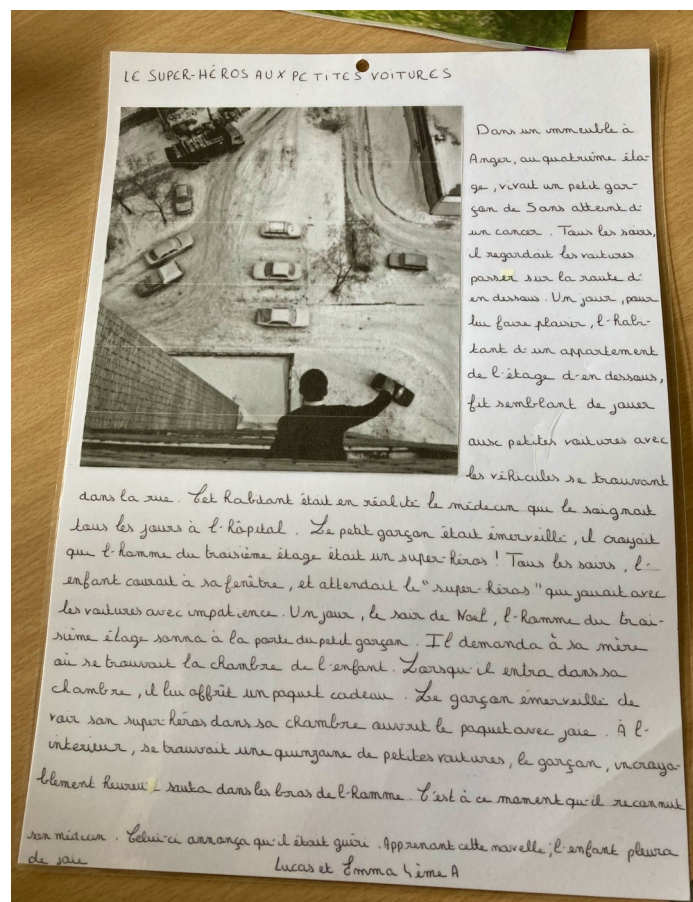 LE SUPER-HÉROS AUX PETITES VOITURES
Dans un immeuble à
Anger, au quatrième éta-
ge, vivait un petit gar-
çon de 5 ans atteint d'
un cancer. Tous les soirs,
il regardait les voitures
passer sur la route d'
en dessous. Un jour, pour
lui faire plaisir, l'habi-
tant d'un appartement
de l'étage d'en dessous,
fit semblant de jouer
aux petites voitures avec
les véhicules se trouvant
dans la rue. Cet habitant était en réalité le médecin qui le soignait
tous les jours à l'hôpital. Le petit garçon était émerveillé, il croyait
que l'homme du troisième étage était un super-héros ! Tous les soirs, l'-
enfant courait à sa fenêtre, et attendait le "super-héros" qui jouait avec
les voitures avec impatience. Un jour, le soir de Noël, l'homme du troi-
sième étage sonna à la porte du petit garçon. Il demanda à sa mère
où se trouvait la chambre de l'enfant. Lorsqu'il entra dans sa
chambre, il lui offrît un paquet cadeau. Le garçon émerveillé de
voir son super-héros dans sa chambre ouvrit le paquet avec joie. À l'-
intérieur, se trouvait une quinzaine de petites voitures, le garçon, incroya-
blement heureu sauta dans les bras de l'homme. C'est à ce moment qu'il reconnut
son médecin. Celui-ci annonça qu'il était guéri. Apprenant cette nouvelle, l'enfant pleura
de joie
Lucas et Emma 4ème A